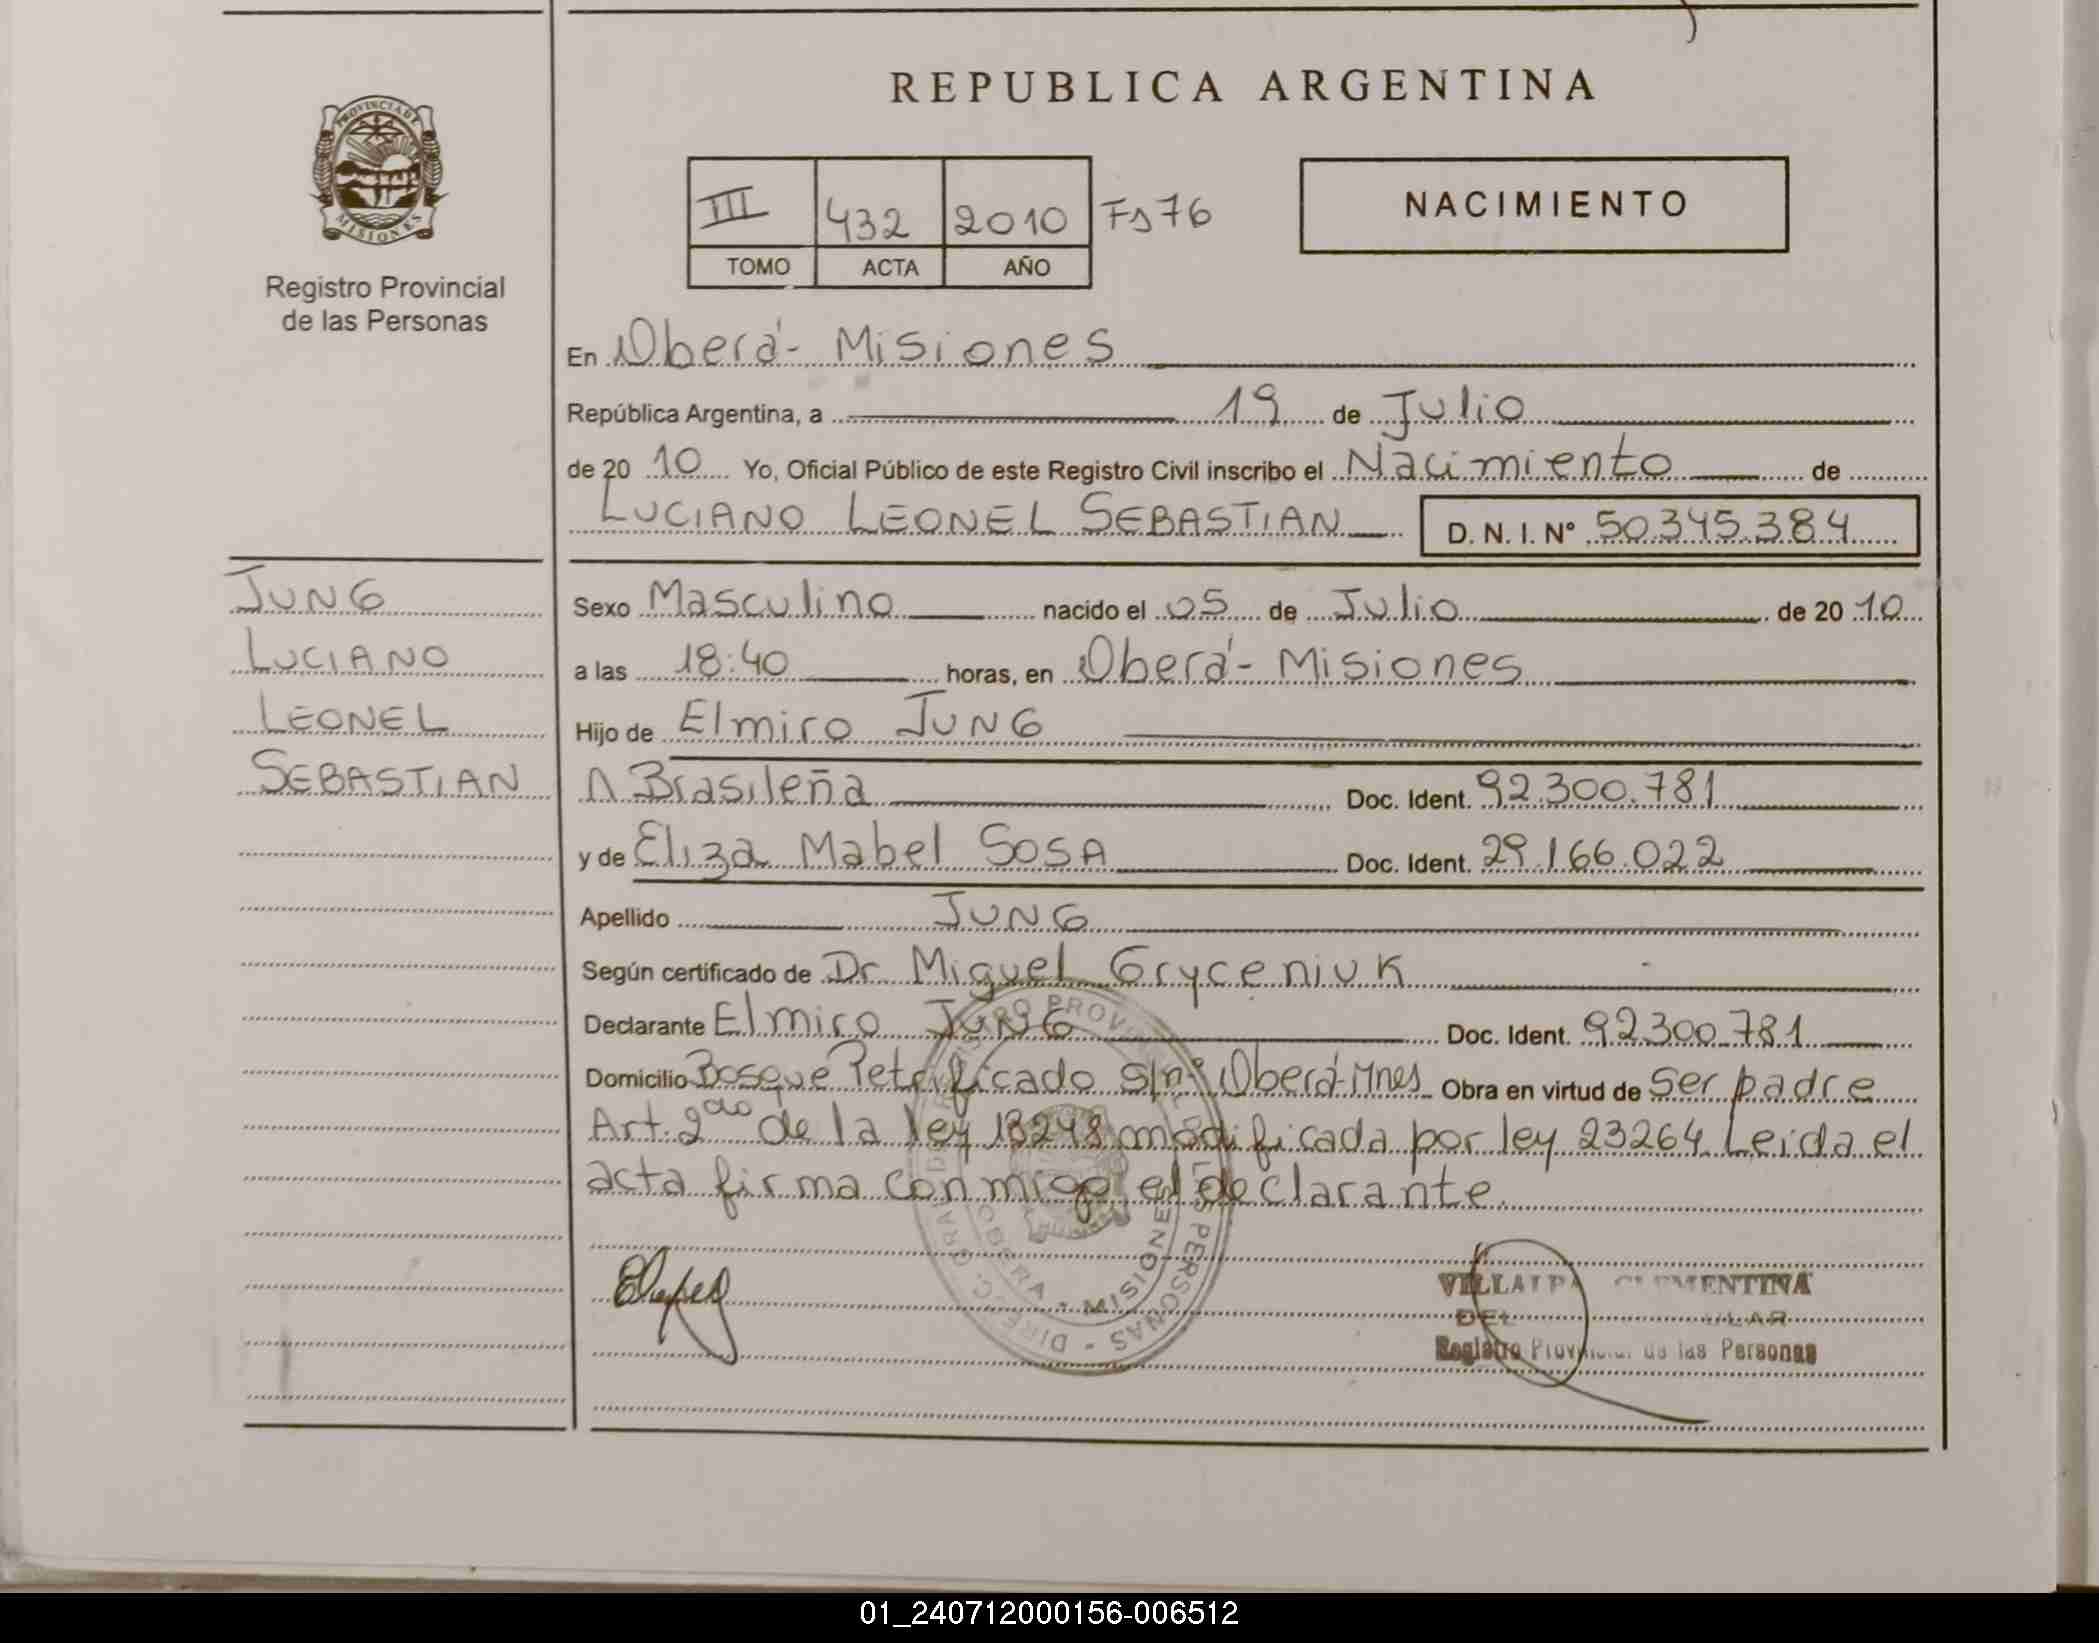 REPUBLICA ARGENTINA
PROVINCIA DE
MISIONES
Registro Provincial
de las Personas
III 432 2010 Fs 76
TOMO ACTA AÑO
NACIMIENTO
En Oberá - Misiones
República Argentina, a 19 de Julio
de 2010 Yo, Oficial Público de este Registro Civil inscribo el Nacimiento de
LUCIANO LEONEL SEBASTIAN D. N. I. N° 50.345.384
JUNG
LUCIANO
LEONEL
SEBASTIAN
Sexo Masculino nacido el 05 de Julio de 2010
a las 18:40 horas, en Oberá - Misiones
Hijo de Elmiro JUNG
N Brasileña Doc. Ident. 92.300.781
y de Eliza Mabel SOSA Doc. Ident. 29.166.022
Apellido JUNG
Según certificado de Dr. Miguel Gryceniuk
Declarante Elmiro JUNG Doc. Ident. 92300.781
Domicilio Bosque Petrificado s/n° Oberá-Mnes Obra en virtud de Ser padre
Art. 2do de la ley 18248 modificada por ley 23264. Leida el
acta firma conmigo el declarante.
OBERA - MISIONES
CLEMENTINA
DEL
Registro Provincial de las Personas
01_240712000156-006512